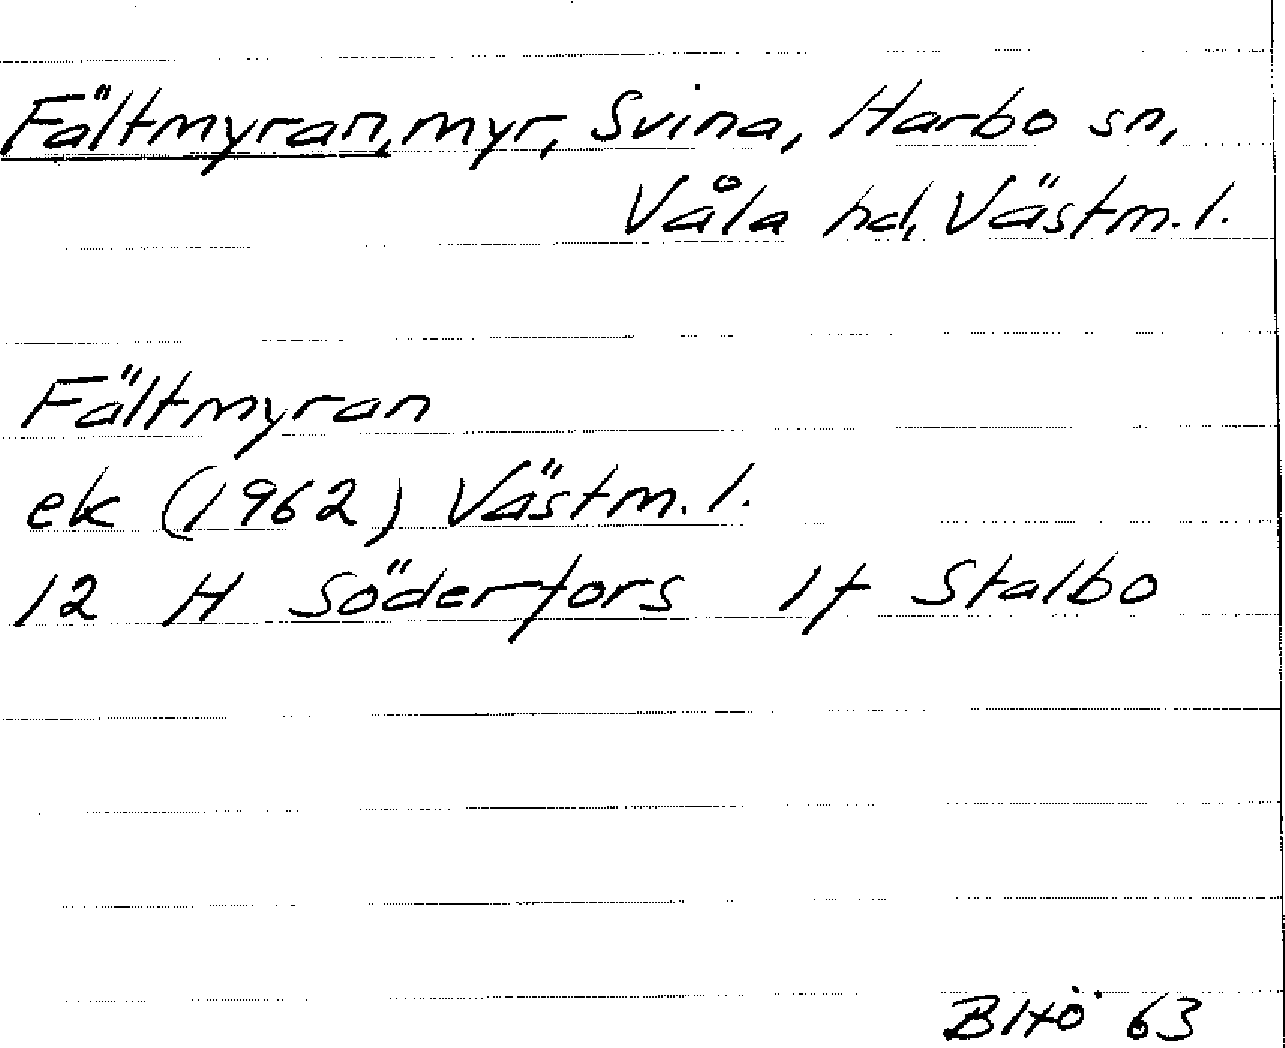 Fältmyran, myr, Svina, Harbo sn,
Våla hd, Västm. l.
Fältmyran
ek (1962) Västm. l.
12 H Söderfors 1f Stalbo
BHÖ 63